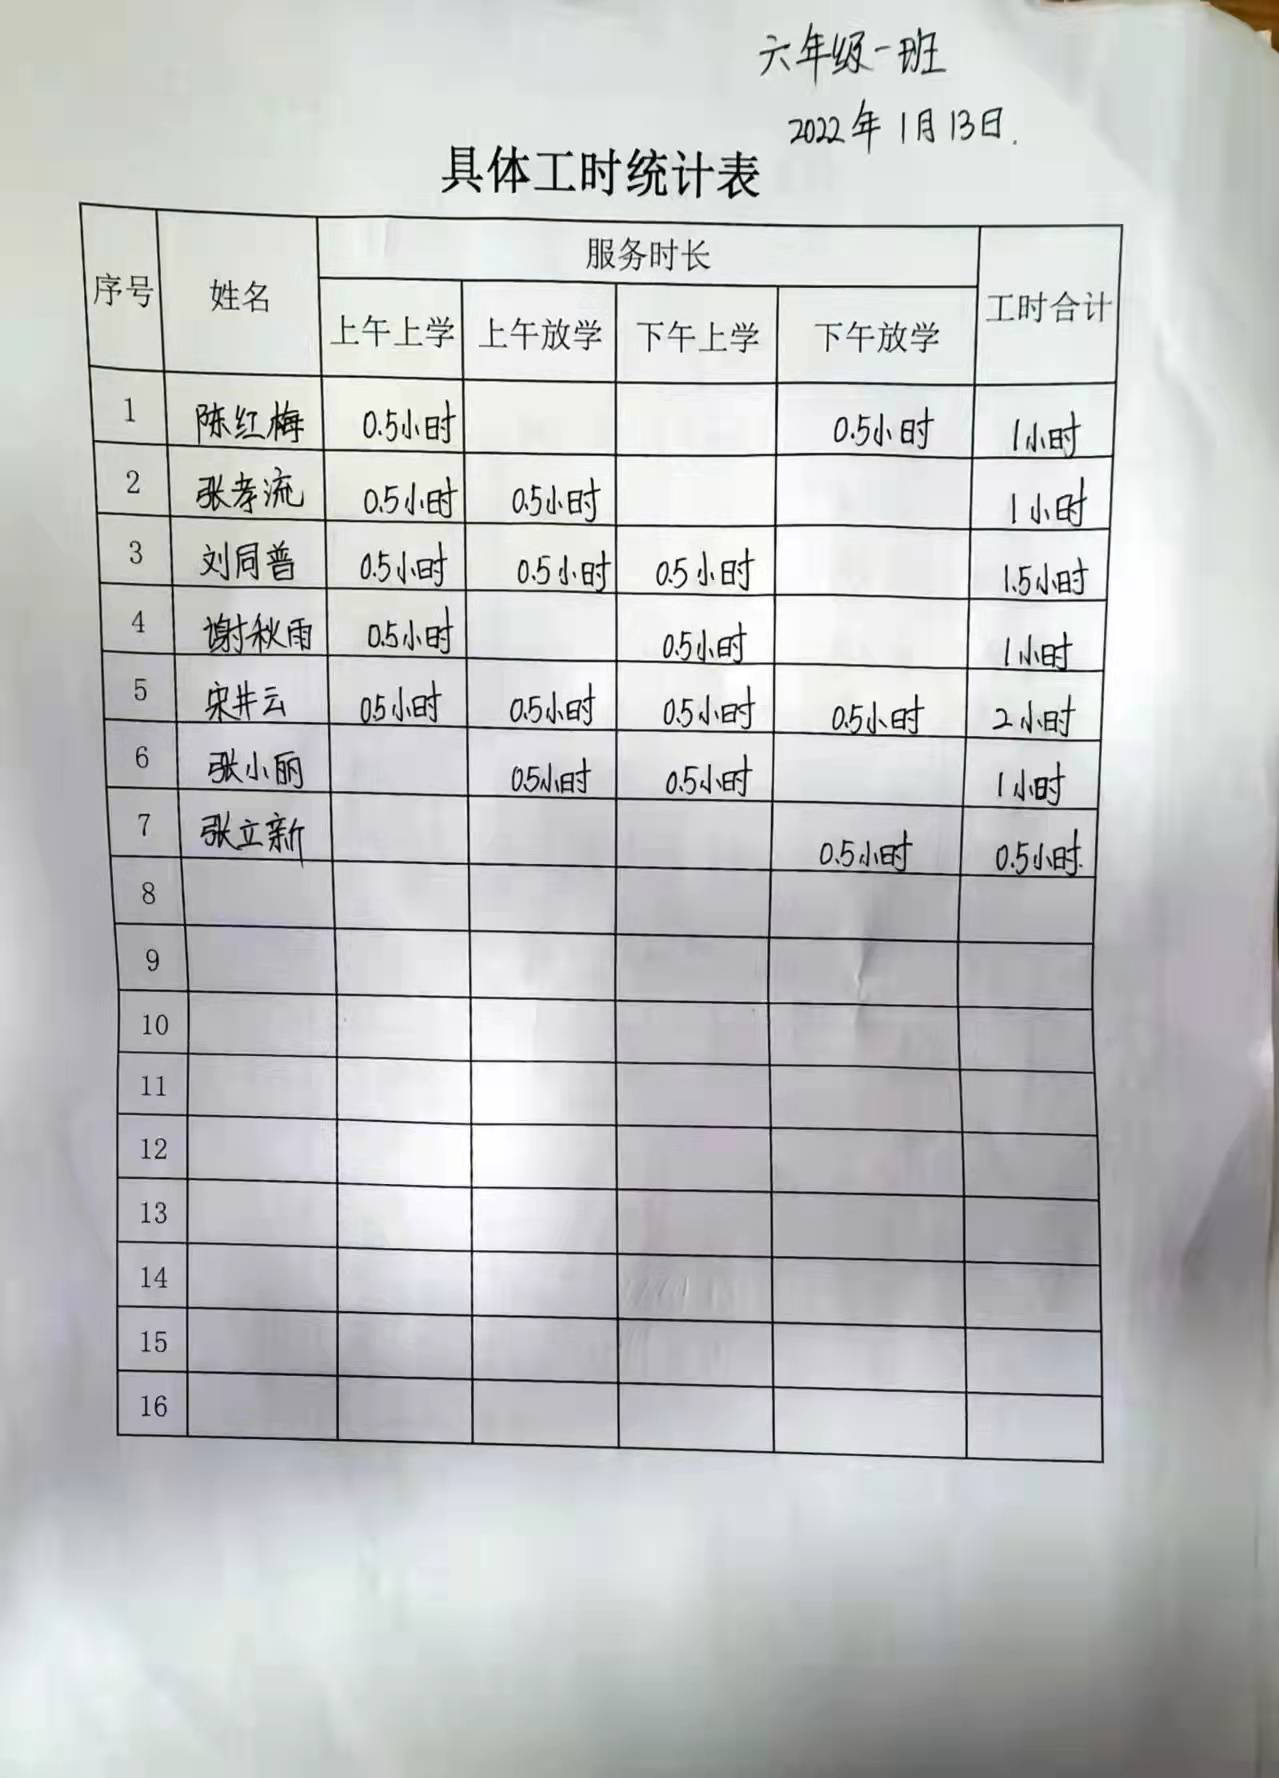 六年级一班
2022年1月13日.
具体工时统计表
序号 姓名 服务时长 工时合计
上午上学 上午放学 下午上学 下午放学
1 陈红梅 0.5小时 0.5小时 1小时
2 张孝流 0.5小时 0.5小时 1小时
3 刘同普 0.5小时 0.5小时 0.5小时 1.5小时
4 谢秋雨 0.5小时 0.5小时 1小时
5 宋井云 05小时 0.5小时 0.5小时 0.5小时 2小时
6 张小丽 05小时 0.5小时 1小时
7 张立新 0.5小时 0.5小时.
8
9
10
11
12
13
14
15
16